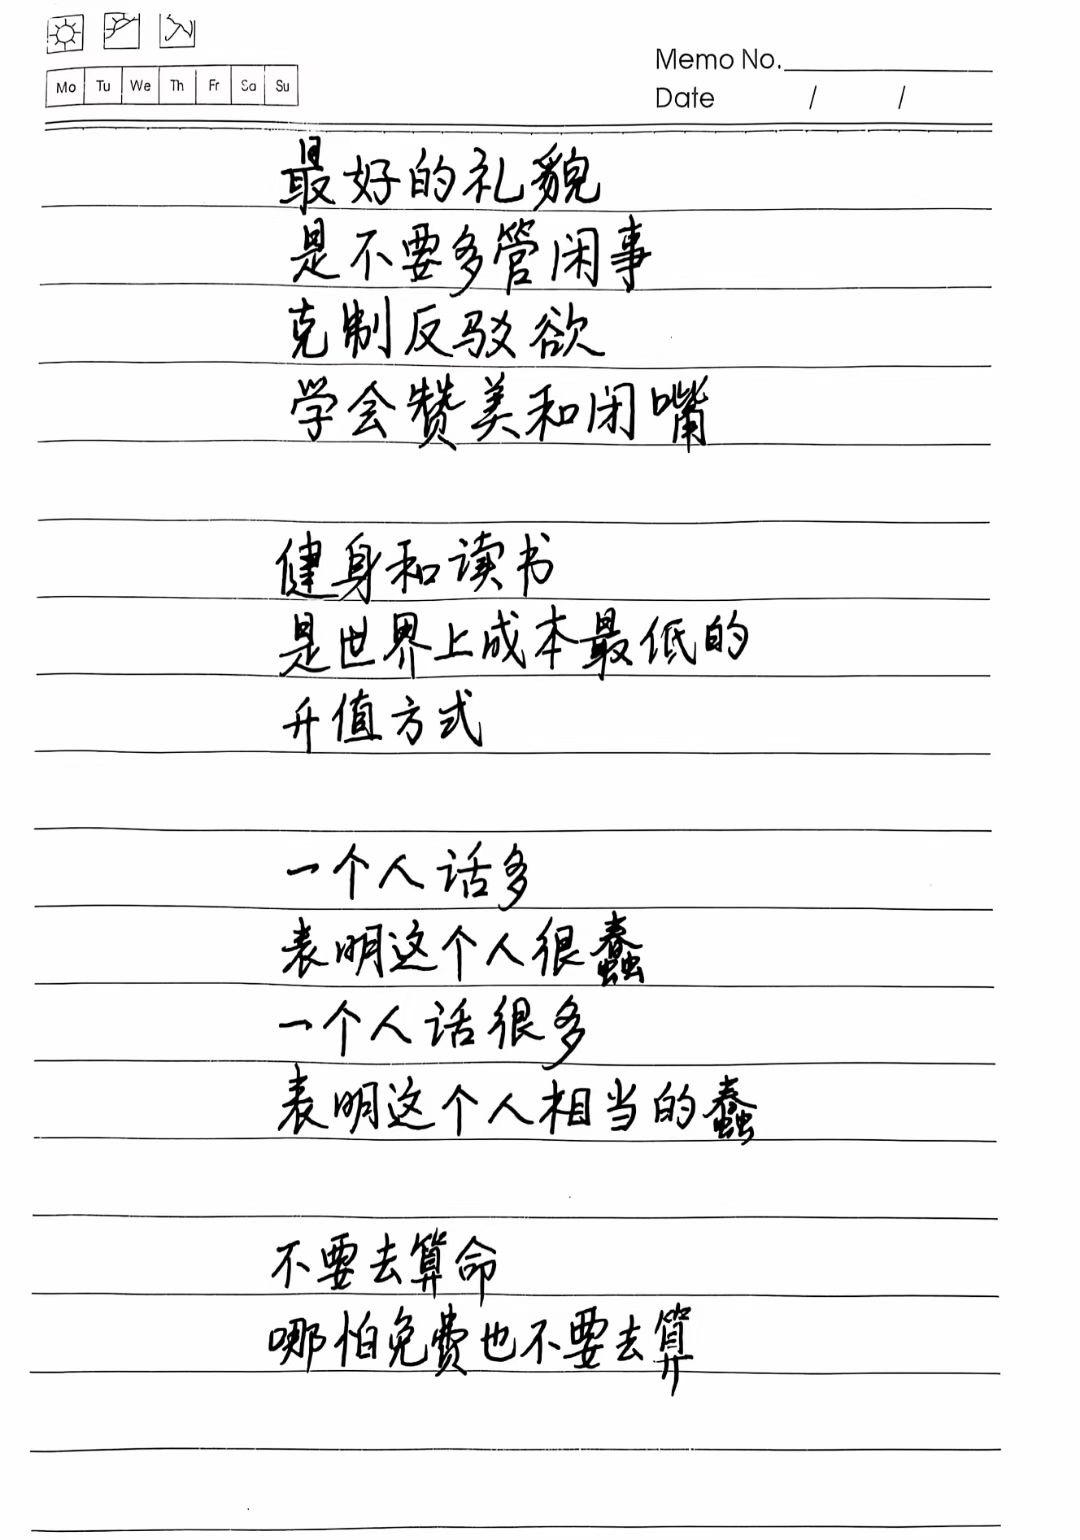 Memo No.
Mo Tu We Th Fr Sa Su
Date / /
最好的礼貌
是不要多管闲事
克制反驳欲
学会赞美和闭嘴
健身和读书
是世界上成本最低的
升值方式
一个人话多
表明这个人很蠢
一个人话很多
表明这个人相当的蠢
不要去算命
哪怕免费也不要去算